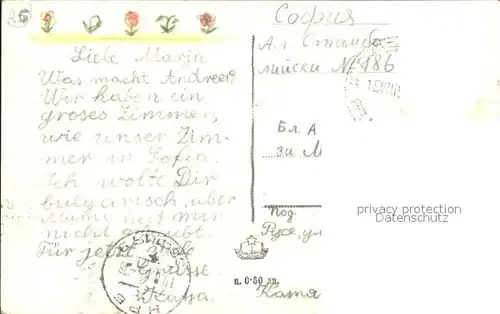 Liebe Marja
Was macht Andreer?
Wir haben ein
groses Zimmer,
wie unser Zim-
mer in Sofia.
Ich wolte Dir
bulgarisch, aber
Mama hat mir
nicht erlaubt.
Für jetzt viele
Grüsse
Katja.
София
А. Стамбо-
лийски №486
Бл. А
за М
под
Русе, ул
Катя
ц. 0·60 лв.
privacy protection
Datenschutz